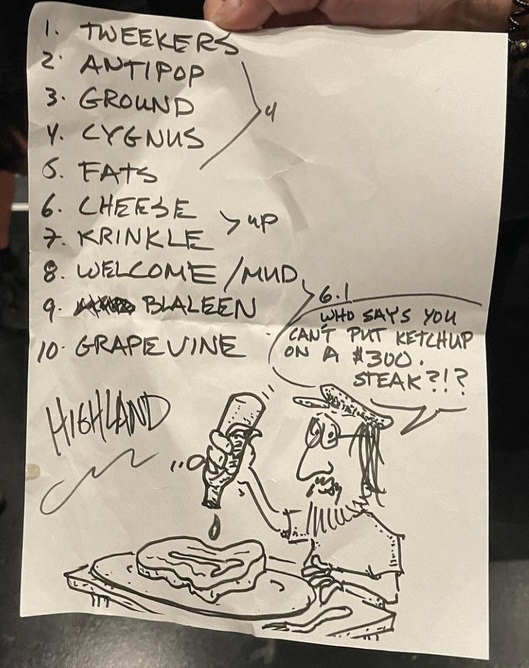 1. TWEEKERS
2. ANTIPOP
3. GROUND
4. CYGNUS
5. FATS
4
6. CHEESE
7. KRINKLE
UP
8. WELCOME / MUD
9. BLALEEN
6.1
10. GRAPEVINE
WHO SAYS YOU
CAN'T PUT KETCHUP
ON A $300.
STEAK?!?
HIGHLAND